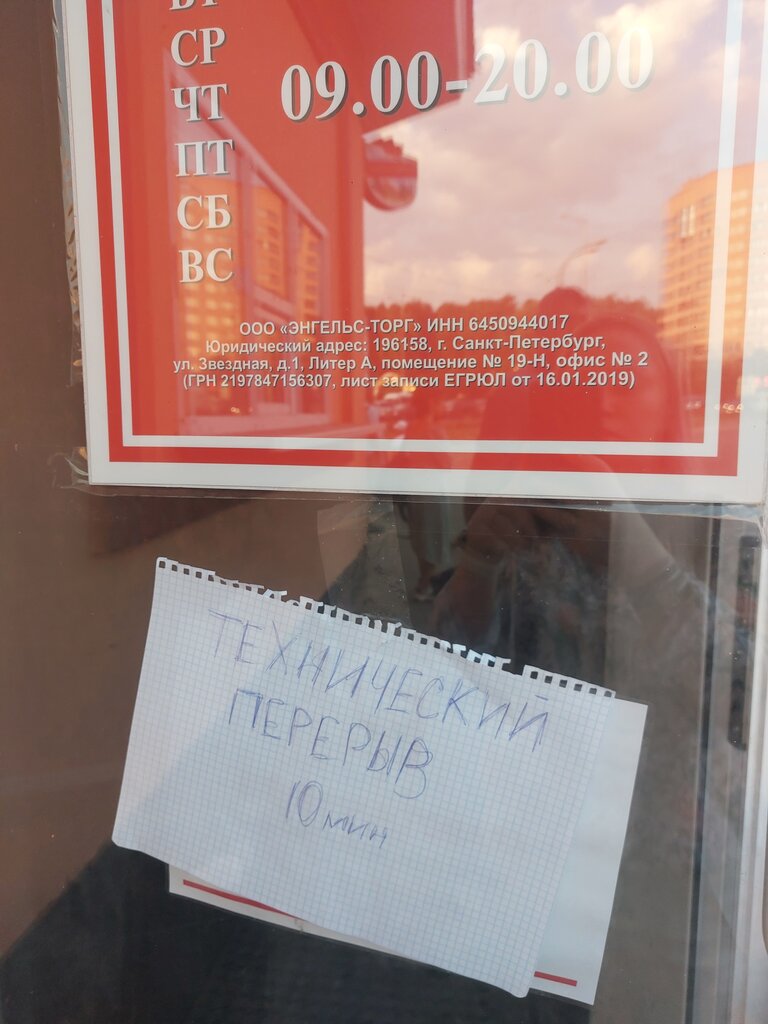 ВТ
СР
ЧТ
ПТ
СБ
ВС
09.00-20.00
ООО «ЭНГЕЛЬС-ТОРГ» ИНН 6450944017
Юридический адрес: 196158, г. Санкт-Петербург,
ул. Звездная, д.1, Литер А, помещение № 19-Н, офис № 2
(ГРН 2197847156307, лист записи ЕГРЮЛ от 16.01.2019)
ТЕХНИЧЕСКИЙ
ПЕРЕРЫВ
10 мин